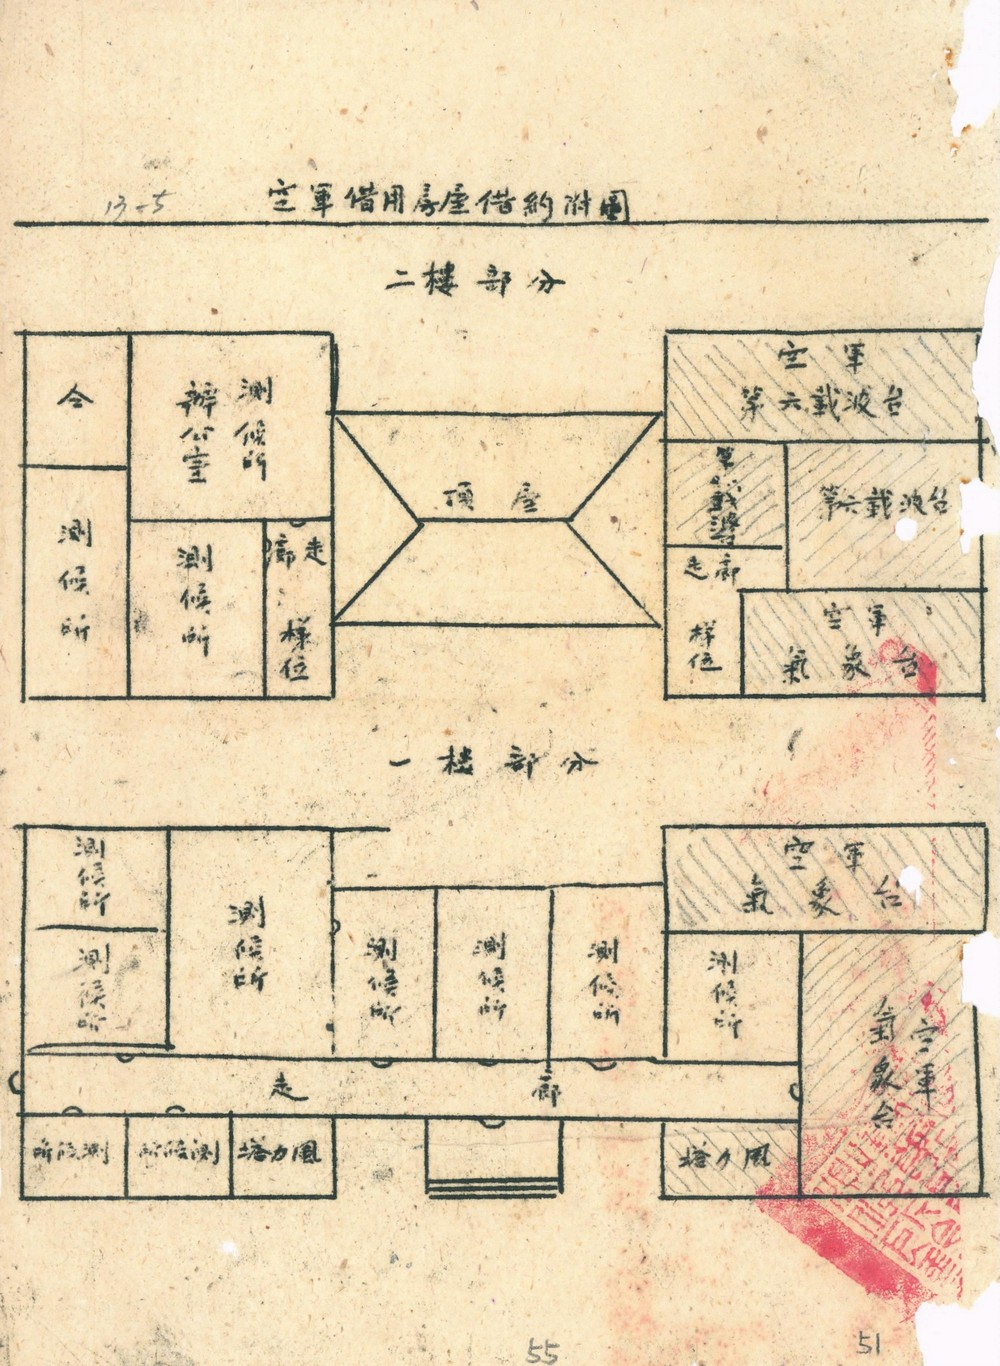 13-5
空軍借用房屋借約附圖
二樓部分
令
測候所
辦公室
測候所
測候所
走廊
樣位
頂屋
空軍
第六載波台
第六載波台
走廊
樣位
空軍
氣象台
一楼部分
測候所
測候所
測候所
測候所
測候所
測候所
測候所
空軍
氣象台
空軍
氣象台
走廊
所候測
所候測
塔力風
塔力風
55
51